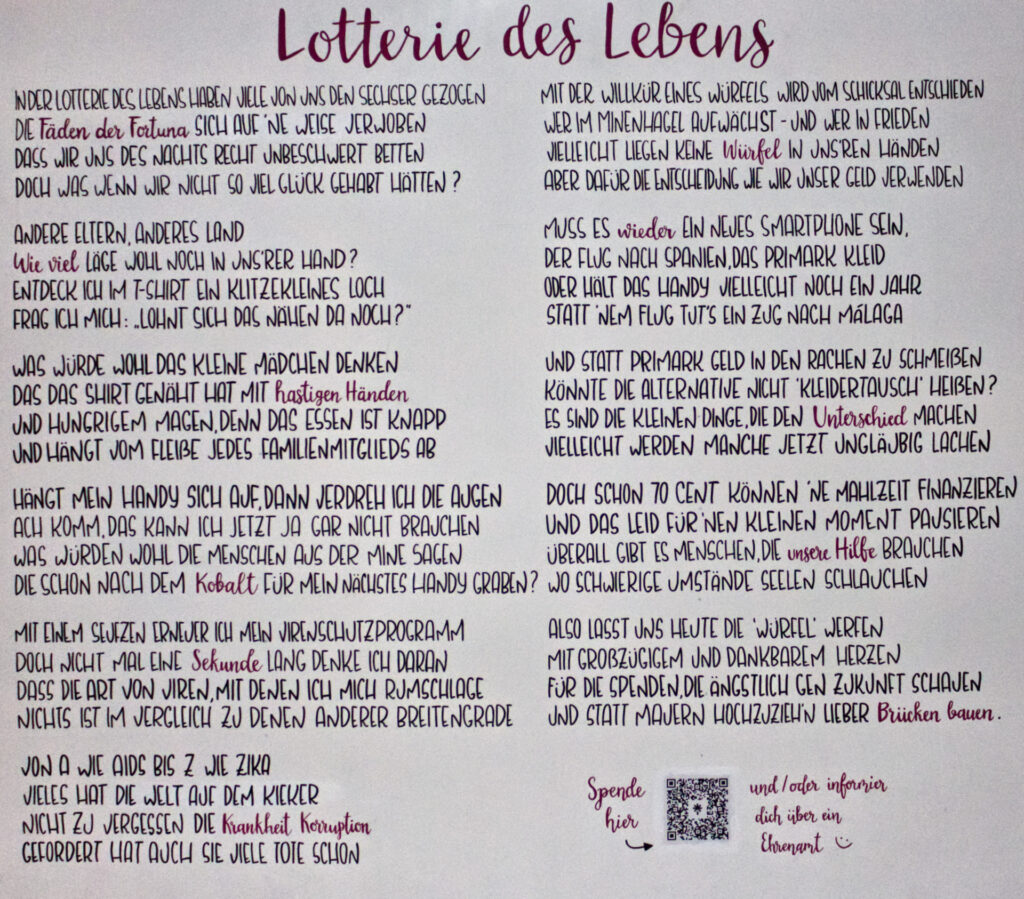 Lotterie des Lebens
IN DER LOTTERIE DES LEBENS HABEN VIELE VON UNS DEN SECHSER GEZOGEN
DIE Fäden der Fortuna SICH AUF 'NE WEISE VERWOBEN
DASS WIR UNS DES NACHTS RECHT UNBESCHWERT BETTEN
DOCH WAS WENN WIR NICHT SO VIEL GLÜCK GEHABT HÄTTEN?
ANDERE ELTERN, ANDERES LAND
Wie viel LÄGE WOHL NOCH IN UNS'RER HAND?
ENTDECK ICH IM T-SHIRT EIN KLITZEKLEINES LOCH
FRAG ICH MICH: „LOHNT SICH DAS NÄHEN DA NOCH?"
WAS WÜRDE WOHL DAS KLEINE MÄDCHEN DENKEN
DAS DAS SHIRT GENÄHT HAT MIT hastigen Händen
UND HUNGRIGEM MAGEN, DENN DAS ESSEN IST KNAPP
UND HÄNGT VOM FLEIßE JEDES FAMILIENMITGLIEDS AB
HÄNGT MEIN HANDY SICH AUF, DANN VERDREH ICH DIE AUGEN
ACH KOMM, DAS KANN ICH JETZT JA GAR NICHT BRAUCHEN
WAS WÜRDEN WOHL DIE MENSCHEN AUS DER MINE SAGEN
DIE SCHON NACH DEM Kobalt FÜR MEIN NÄCHSTES HANDY GRABEN?
MIT EINEM SEUFZEN ERNEUER ICH MEIN VIRENSCHUTZPROGRAMM
DOCH NICHT MAL EINE Sekunde LANG DENKE ICH DARAN
DASS DIE ART VON VIREN, MIT DENEN ICH MICH RUMSCHLAGE
NICHTS IST IM VERGLEICH ZU DENEN ANDERER BREITENGRADE
VON A WIE AIDS BIS Z WIE ZIKA
VIELES HAT DIE WELT AUF DEM KIEKER
NICHT ZU VERGESSEN DIE Krankheit Korruption
GEFORDERT HAT AUCH SIE VIELE TOTE SCHON
MIT DER WILLKÜR EINES WÜRFELS WIRD VOM SCHICKSAL ENTSCHIEDEN
WER IM MINENHAGEL AUFWÄCHST - UND WER IN FRIEDEN
VIELLEICHT LIEGEN KEINE Würfel IN UNS'REN HÄNDEN
ABER DAFÜR DIE ENTSCHEIDUNG WIE WIR UNSER GELD VERWENDEN
MUSS ES wieder EIN NEUES SMARTPHONE SEIN,
DER FLUG NACH SPANIEN, DAS PRIMARK KLEID
ODER HÄLT DAS HANDY VIELLEICHT NOCH EIN JAHR
STATT 'NEM FLUG TUT'S EIN ZUG NACH MÁLAGA
UND STATT PRIMARK GELD IN DEN RACHEN ZU SCHMEIßEN
KÖNNTE DIE ALTERNATIVE NICHT 'KLEIDERTAUSCH' HEIßEN?
ES SIND DIE KLEINEN DINGE, DIE DEN Unterschied MACHEN
VIELLEICHT WERDEN MANCHE JETZT UNGLÄUBIG LACHEN
DOCH SCHON 70 CENT KÖNNEN 'NE MAHLZEIT FINANZIEREN
UND DAS LEID FÜR 'NEN KLEINEN MOMENT PAUSIEREN
ÜBERALL GIBT ES MENSCHEN, DIE unsere Hilfe BRAUCHEN
WO SCHWIERIGE UMSTÄNDE SEELEN SCHLAUCHEN
ALSO LASST UNS HEUTE DIE 'WÜRFEL' WERFEN
MIT GROßZÜGIGEM UND DANKBAREM HERZEN
FÜR DIE SPENDEN, DIE ÄNGSTLICH GEN ZUKUNFT SCHAUEN
UND STATT MAUERN HOCHZUZIEH'N LIEBER Brücken bauen.
Spende
hier
und/oder informier
dich über ein
Ehrenamt